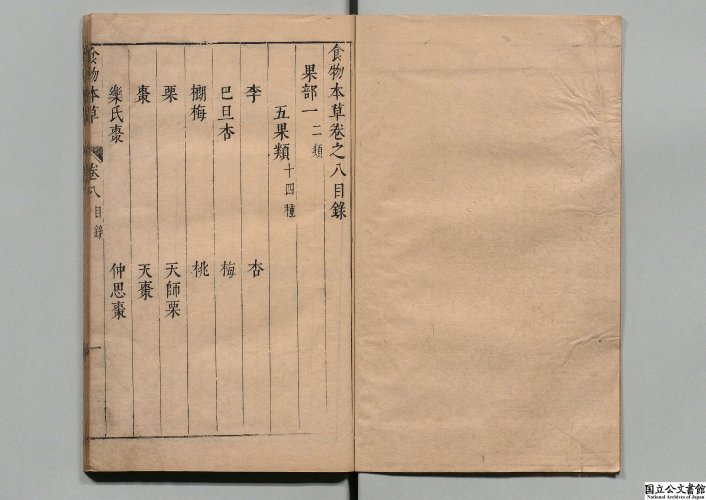 食物本草卷之八目錄
果部一 二類
五果類 十四種
李 杏
巴旦杏 梅
榔梅 桃
栗 天師栗
棗 天棗
樂氏棗 仲思棗
食物本草 卷八 目錄 一
国立公文書館
National Archives of Japan